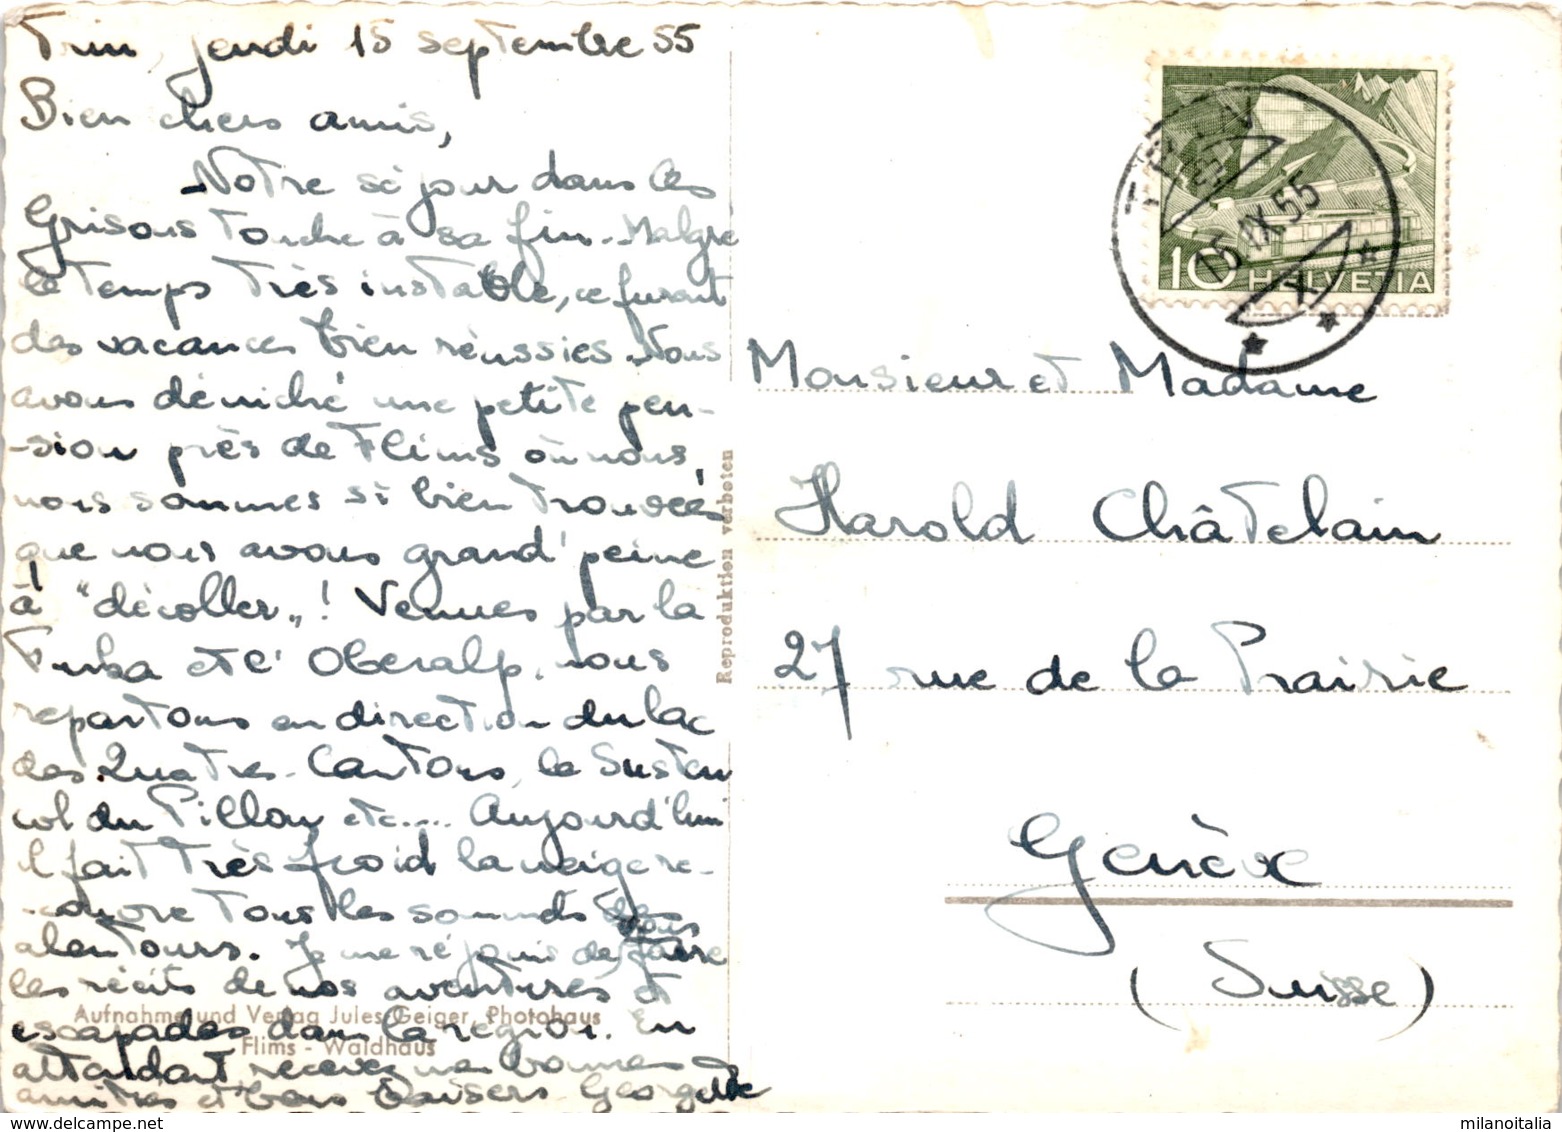 Trin, jeudi 15 septembre 55
Bien chers amis,
Notre séjour dans les
Grisons touche à sa fin. Malgré
le temps très instable, ce furent
des vacances bien réussies. Nous
avons déniché une petite pen-
-sion près de Flims où nous
nous sommes si bien trouvées
que nous avons grand'peine
à "décoller"! Venues par la
Furka et l'Oberalp, nous
repartons en direction du lac
des Quatres-Cantons, le Susten
col du Pillon etc.... Aujourd'hui
il fait très froid la neige re-
-couvre tous les sommets des
alentours. Je me réjouis de vous faire
les récits de nos aventures et
escapades dans la région. En
attendant recevez nos bonnes
amitiés et bons baisers. Georgette
Aufnahme und Verlag Jules Geiger, Photohaus
Flims - Waldhaus
Reproduktion verboten
10 HELVETIA
16.IX.55
X
Monsieur et Madame
Harold Châtelain
27 rue de la Prairie
Genève
(Suisse)
milanoitalia